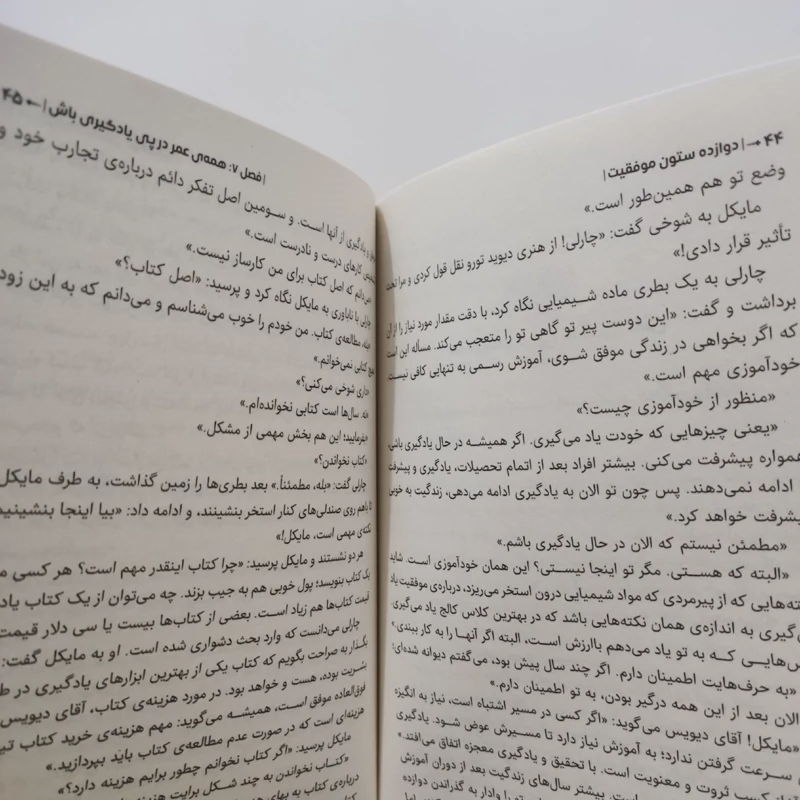 ۴۴ → | دوازده ستون موفقیت |
وضع تو هم همین‌طور است.»
مایکل به شوخی گفت: «چارلی! از هنری دیوید تورو نقل قول کردی و مرا تحت
تأثیر قرار دادی!»
چارلی به یک بطری ماده شیمیایی نگاه کرد، با دقت مقدار مورد نیاز را از آن
برداشت و گفت: «این دوست پیر تو گاهی تو را متعجب می‌کند. مسأله این است
که اگر بخواهی در زندگی موفق شوی، آموزش رسمی به تنهایی کافی نیست
خودآموزی مهم است.»
«منظور از خودآموزی چیست؟»
«یعنی چیزهایی که خودت یاد می‌گیری. اگر همیشه در حال یادگیری باشی،
همواره پیشرفت می‌کنی. بیشتر افراد بعد از اتمام تحصیلات، یادگیری و پیشرفت
ادامه نمی‌دهند. پس چون تو الان به یادگیری ادامه می‌دهی، زندگیت به خوبی
پیشرفت خواهد کرد.»
«مطمئن نیستم که الان در حال یادگیری باشم.»
«البته که هستی. مگر تو اینجا نیستی؟ این همان خودآموزی است. شاید
نکته‌هایی که از پیرمردی که مواد شیمیایی درون استخر می‌ریزد، درباره‌ی موفقیت یاد
می‌گیری به اندازه‌ی همان نکته‌هایی باشد که در بهترین کلاس کالج یاد می‌گیری.
که به تو یاد می‌دهم باارزش است، البته اگر آنها را به کار ببندی.»
«به حرف‌هایت اطمینان دارم. اگر چند سال پیش بود، می‌گفتم دیوانه شده‌ای؛
الان بعد از این همه درگیر بودن، به تو اطمینان دارم.»
«مایکل! آقای دیویس می‌گوید: «اگر کسی در مسیر اشتباه است، نیاز به انگیزه
سرعت گرفتن ندارد؛ به آموزش نیاز دارد تا مسیرش عوض شود. یادگیری
کسب ثروت و معنویت است. با تحقیق و یادگیری معجزه اتفاق می‌افتد.»
است. بیشتر سال‌های زندگیت بعد از دوران آموزش
تو را وادار به گذراندن دوازده
| فصل ۷: همه‌ی عمر در پی یادگیری باش | ← ۴۵
و یادگیری از آنها است. و سومین اصل تفکر دائم درباره‌ی تجارب خود و
کارهای درست و نادرست است.»
می‌دانم که اصل کتاب برای من کارساز نیست.»
چارلی با ناباوری به مایکل نگاه کرد و پرسید: «اصل کتاب؟»
«بله، مطالعه‌ی کتاب. من خودم را خوب می‌شناسم و می‌دانم که به این زود
هیچ کتابی نمی‌خوانم.»
«داری شوخی می‌کنی؟»
«نه. سال‌ها است کتابی نخوانده‌ام.»
«بفرمایید؛ این هم بخش مهمی از مشکل.»
«کتاب نخواندن؟»
چارلی گفت: «بله، مطمئناً.» بعد بطری‌ها را زمین گذاشت، به طرف مایکل
تا باهم روی صندلی‌های کنار استخر بنشینند، و ادامه داد: «بیا اینجا بنشینیم
نکته‌ی مهمی است، مایکل!»
هر دو نشستند و مایکل پرسید: «چرا کتاب اینقدر مهم است؟ هر کسی
یک کتاب بنویسد؛ پول خوبی هم به جیب بزند. چه می‌توان از یک کتاب یاد
قیمت کتاب‌ها هم زیاد است. بعضی از کتاب‌ها بیست یا سی دلار قیمت
چارلی می‌دانست که وارد بحث دشواری شده است. او به مایکل گفت:
بگذار به صراحت بگویم که کتاب یکی از بهترین ابزارهای یادگیری در
بشریت بوده، هست و خواهد بود. در مورد هزینه‌ی کتاب، آقای دیویس
فوق‌العاده موفق است، همیشه می‌گوید: مهم هزینه‌ی خرید کتاب
هزینه‌ای است که در صورت عدم مطالعه‌ی کتاب باید بپردازید.»
مایکل پرسید: «اگر کتاب نخوانم چطور برایم هزینه دارد؟»
«کتاب نخواندن به چند شکل برایت هزینه
درباره‌ی کتاب به بهای